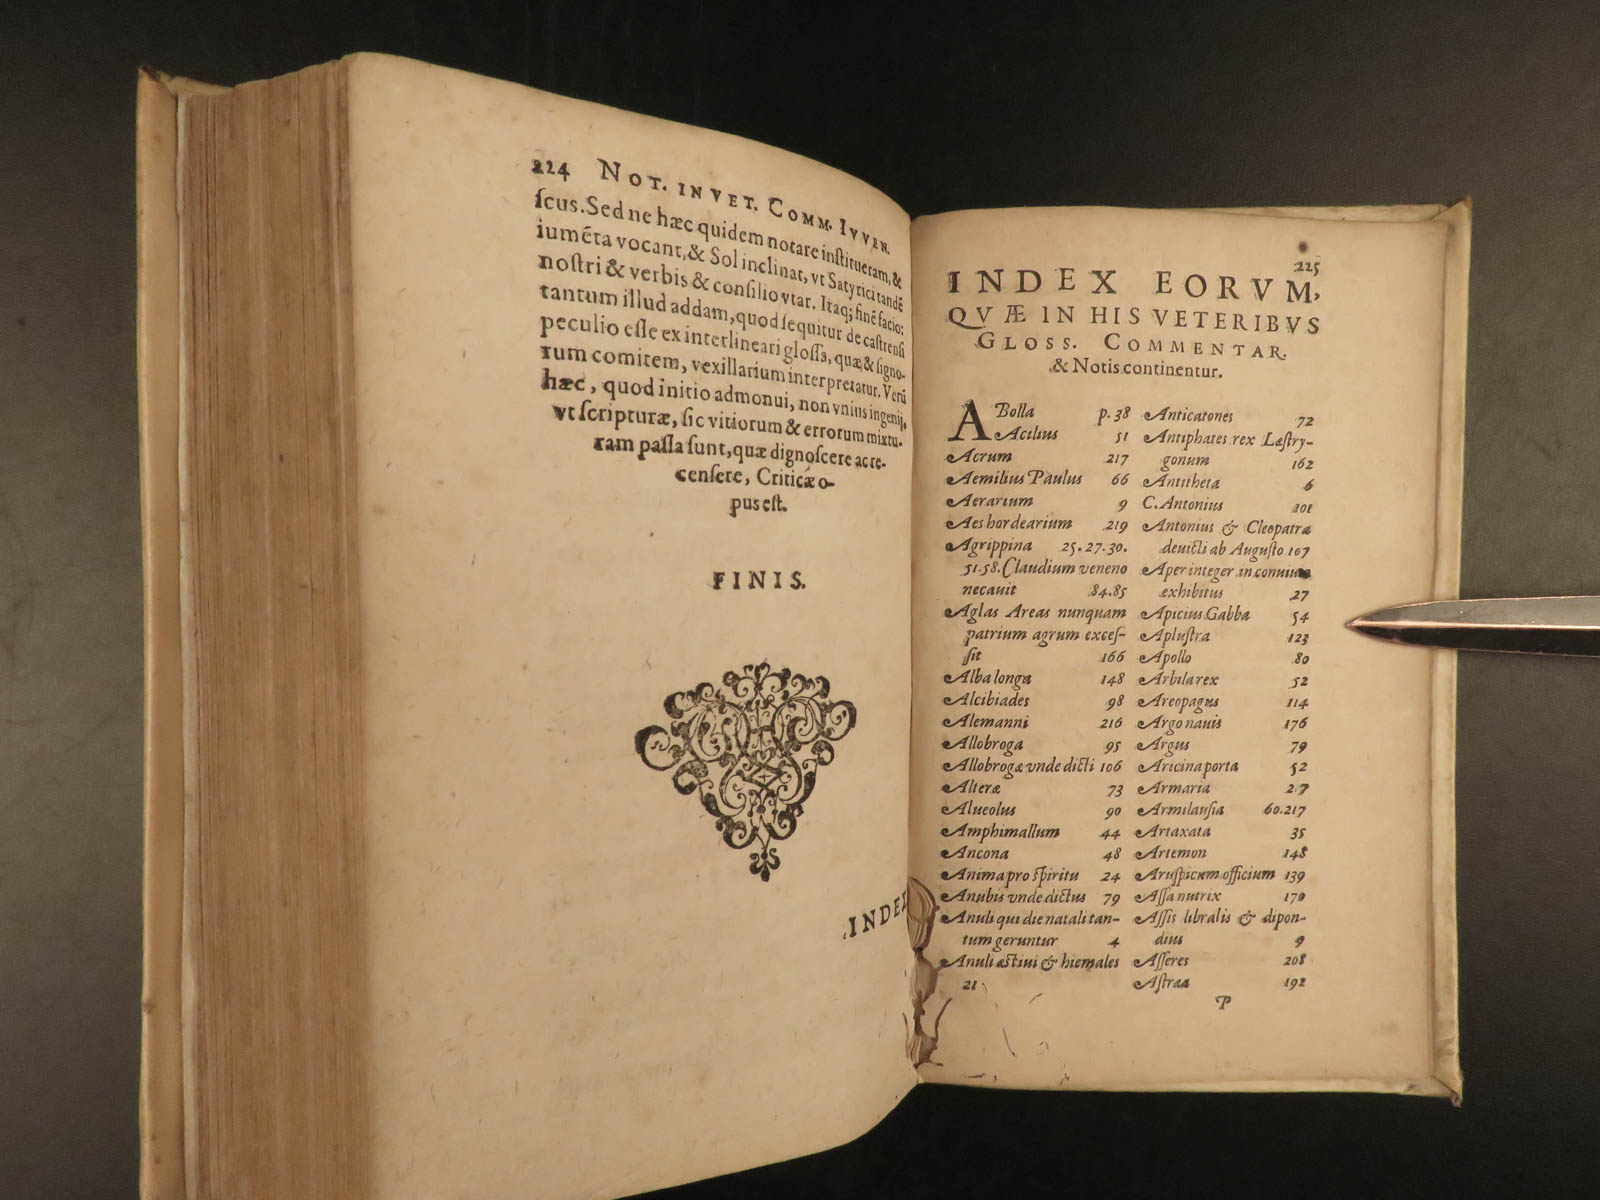 224 NOT. IN VET. COMM. IVVEN.
ſcus. Sed ne hæc quidem notare inſtitueram, &
iumẽta vocant, & Sol inclinat, vt Satyrici tandẽ
noſtri & verbis & conſilio vtar. Itaq; finẽ facio:
tantum illud addam, quod ſequitur de caſtrenſi
peculio eſſe ex interlineari gloſſa, quæ & ſigno-
rum comitem, vexillarium interpretatur. Verũ
hæc, quod initio admonui, non vnius ingenij,
vt ſcripturæ, ſic vitiorum & errorum mixtu-
ram paſſa ſunt, quæ dignoſcere ac re-
cenſere, Criticæ o-
pus eſt.
FINIS.
INDEX
225
INDEX EORVM,
QVÆ IN HIS VETERIBVS
GLOSS. COMMENTAR.
& Notis continentur.
ABolla p. 38
Acilius 51
Acrum 217
Aemilius Paulus 66
Aerarium 9
Aes hordearium 219
Agrippina 25.27.30.
51.58. Claudium veneno
necauit 84.85
Aglas Areas nunquam
patrium agrum exceſ-
ſit 166
Alba longa 148
Alcibiades 98
Alemanni 216
Allobroga 95
Allobrogæ vnde dicti 106
Alteræ 73
Alueolus 90
Amphimallum 44
Ancona 48
Anima pro ſpiritu 24
Anubis vnde dictus 79
Anuli qui die natali tan-
tum geruntur 4
Anuli æſtiui & hiemales
21
Anticatones 72
Antiphates rex Læſtry-
gonum 162
Antitheta 6
C. Antonius 201
Antonius & Cleopatra
deuicti ab Auguſto 107
Aper integer in conuiuio
exhibitus 27
Apicius Gabba 54
Apluſtra 123
Apollo 80
Arbila rex 52
Areopagus 114
Argo nauis 176
Argus 79
Aricina porta 52
Armaria 27
Armilauſia 60.217
Artaxata 35
Artemon 148
Aruſpicum officium 139
Aſſa nutrix 170
Aſſis libralis & dipon-
dius 9
Aſſeres 208
Aſtræa 192
P